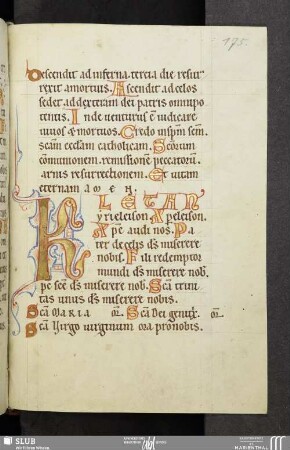 175.
Descendit ad inferna. tercia die resur
rexit a mortuis. Ascendit ad celos
sedet ad dexteram dei patris omnipo
tentis. Inde venturus ē iudicare
uiuos & mortuos. Credo in spm̄ scm̄.
scām eccłam catholicam. Scōrum
cōmunionem. remissionē peccatorū.
carnis resurrectionem. Et uitam
eternam amen.
LETANI
Kyrieleison. Xp̄eleison.
Xp̄e audi nos. Pa
ter de celis ds̄ miserere
nobis. Fili redemptor
mundi ds̄ miserere nob̄.
sp̄c sc̄e ds̄ miserere nob̄. Sc̄a trini
tas unus ds̄ miserere nobis.
Sc̄a Maria or̄. Sc̄a Dei genitx̄. or̄.
Sc̄a Virgo virginum ora pro nobis.
SLUB
Wir führen Wissen.
MARIENTHAL